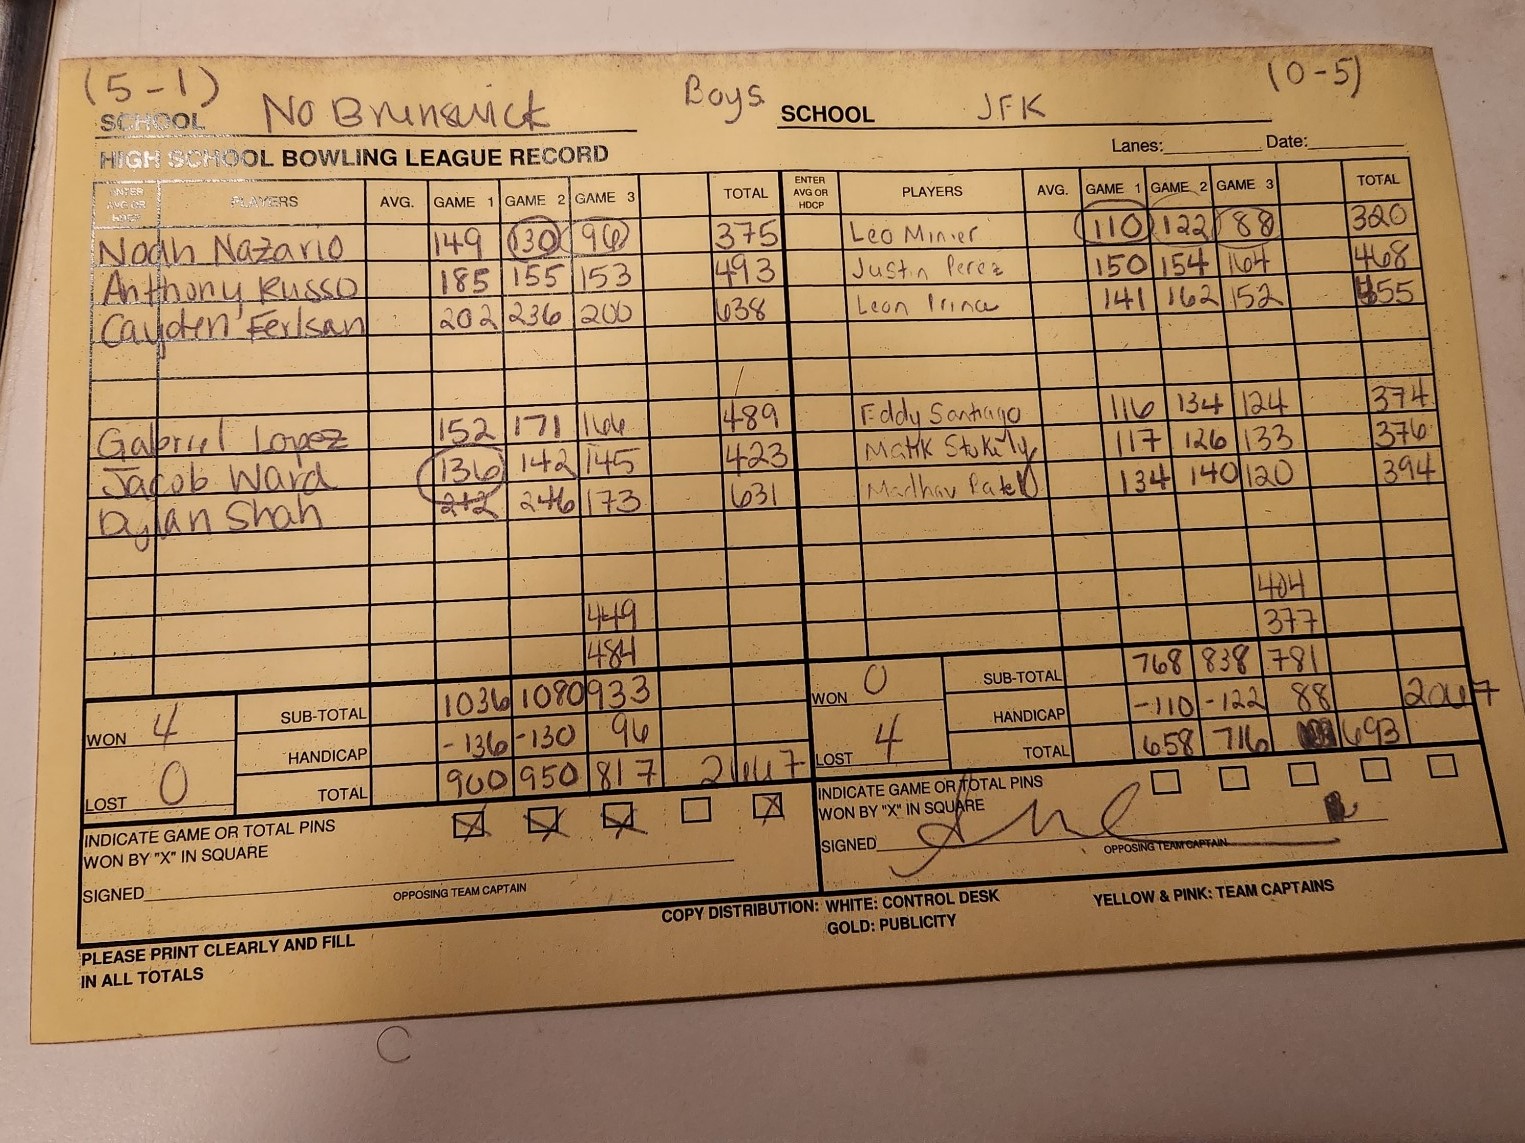 (5-1) No Brunswick Boys JFK (0-5)
SCHOOL SCHOOL
HIGH SCHOOL BOWLING LEAGUE RECORD Lanes: Date:
ENTER AVG OR HDCP PLAYERS AVG. GAME 1 GAME 2 GAME 3 TOTAL ENTER AVG OR HDCP PLAYERS AVG. GAME 1 GAME 2 GAME 3 TOTAL
Noah Nazario 149 130 96 375 Leo Minier 110 122 88 320
Anthony Russo 185 155 153 493 Justin Perez 150 154 164 468
Cayden Ferlsan 202 236 200 638 Leon Prince 141 162 152 455
Gabriel Lopez 152 171 166 489 Eddy Santiago 116 134 124 374
Jacob Ward 136 142 145 423 Malik Stokely 117 126 133 376
Dylan Shah 212 246 173 631 Madhav Patel 134 140 120 394
449 404
484 377
WON 4 SUB-TOTAL 1036 1080 933 WON 0 SUB-TOTAL 768 838 781
HANDICAP -136 -130 96 HANDICAP -110 -122 88 2067
LOST 0 TOTAL 900 950 817 LOST 4 TOTAL 658 716 693
INDICATE GAME OR TOTAL PINS INDICATE GAME OR TOTAL PINS
WON BY "X" IN SQUARE X X X X WON BY "X" IN SQUARE
SIGNED SIGNED
OPPOSING TEAM CAPTAIN OPPOSING TEAM CAPTAIN
COPY DISTRIBUTION: WHITE: CONTROL DESK YELLOW & PINK: TEAM CAPTAINS
GOLD: PUBLICITY
PLEASE PRINT CLEARLY AND FILL
IN ALL TOTALS